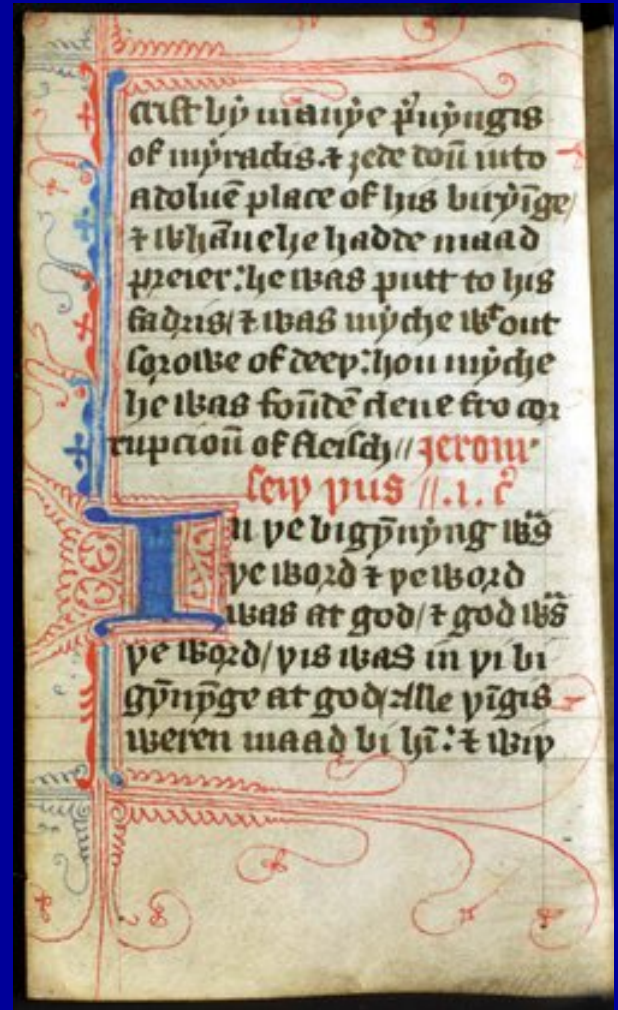 crist bi manye p̃uyngis
of myraclis. ⁊ ȝede doũ into
a doluẽ place of his biryĩge/
⁊ whãne he hadde maad
preier: he was putt to his
fadris/ ⁊ was myche wᵗout
sorowe of deeþ: hou myche
he was foũdẽ clene fro cor
rupcioũ of fleisch // Jerom̛
seiþ þus //. 1. c̃
In þe bigỹnyng wãs
þe word ⁊ þe word
was at god/ ⁊ god wãs
þe word/ þis was in þi bi
gỹnỹge at god/ Alle þĩgis
weren maad bi hĩ: ⁊ wiþ